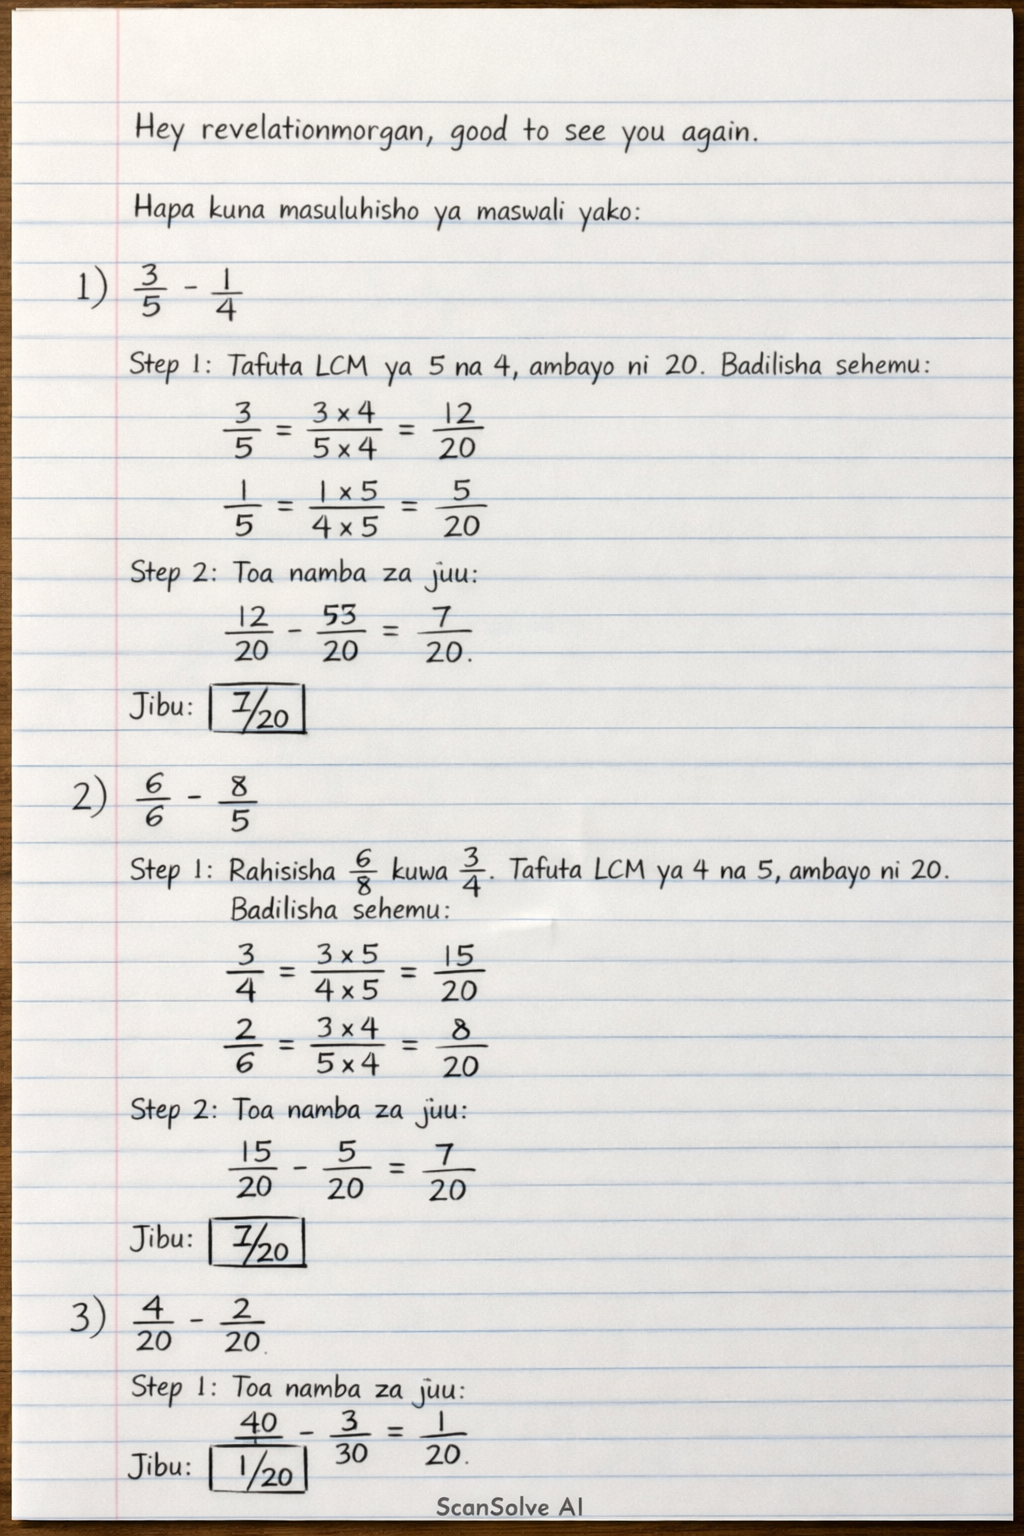 Hey revelationmorgan, good to see you again.
Hapa kuna masuluhisho ya maswali yako:
1) 3/5 - 1/4
Step 1: Tafuta LCM ya 5 na 4, ambayo ni 20. Badilisha sehemu:
3/5 = 3 x 4/5 x 4 = 12/20
1/5 = 1 x 5/4 x 5 = 5/20
Step 2: Toa namba za juu:
12/20 - 53/20 = 7/20.
Jibu: 7/20
2) 6/6 - 8/5
Step 1: Rahisisha 6/8 kuwa 3/4. Tafuta LCM ya 4 na 5, ambayo ni 20.
Badilisha sehemu:
3/4 = 3 x 5/4 x 5 = 15/20
2/6 = 3 x 4/5 x 4 = 8/20
Step 2: Toa namba za juu:
15/20 - 5/20 = 7/20
Jibu: 7/20
3) 4/20 - 2/20.
Step 1: Toa namba za juu:
40 - 3/30 = 1/20.
Jibu: 1/20
ScanSolve AI